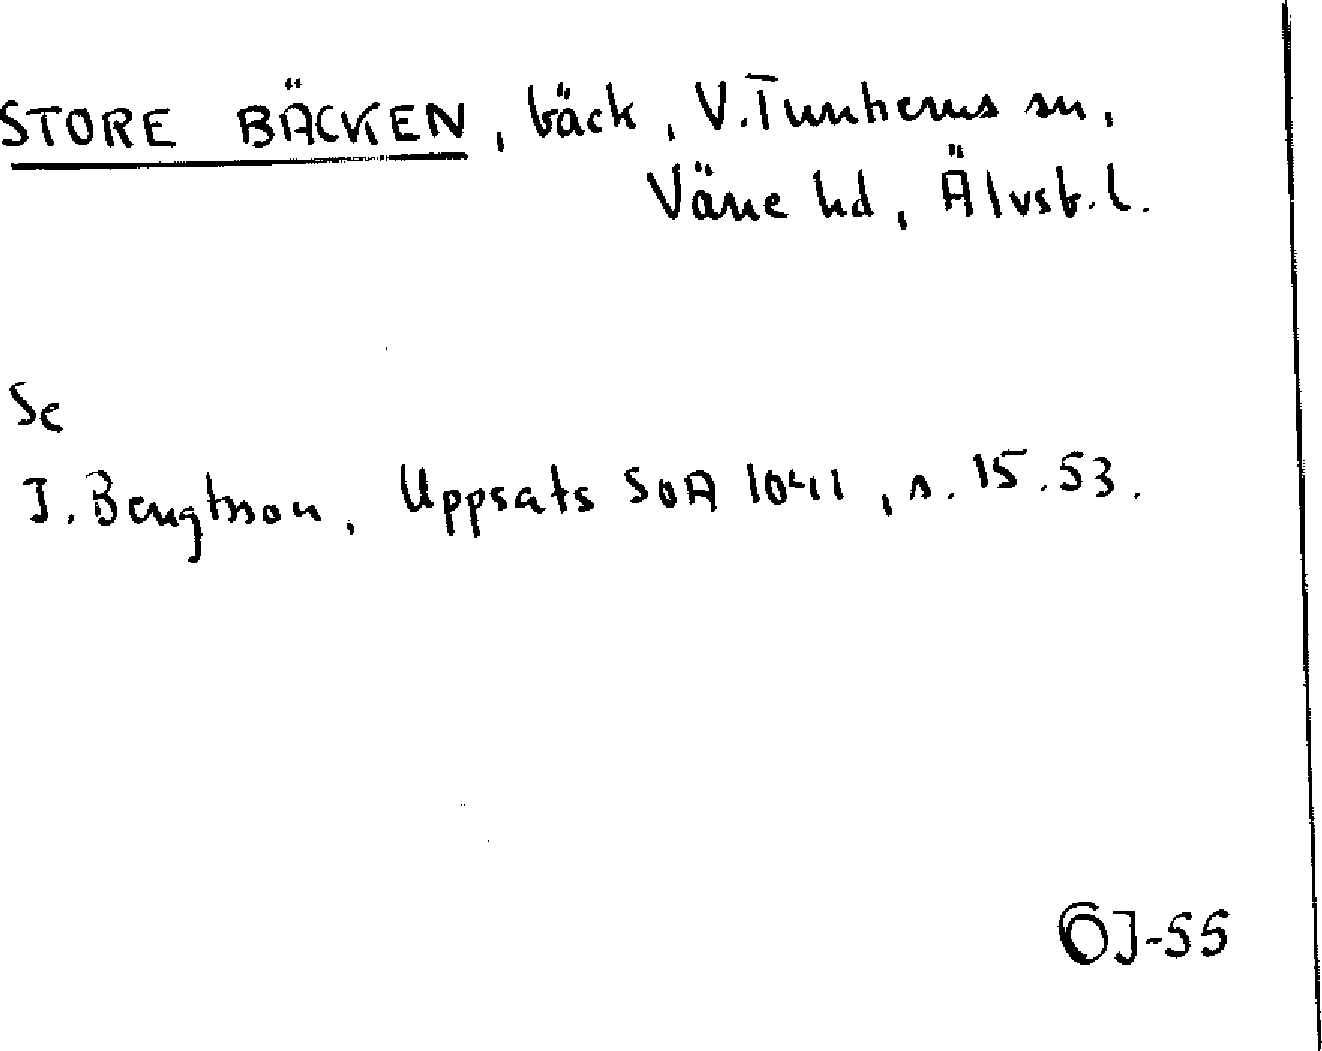 STORE BÄCKEN, bäck, V. Tunhems sn,
Väne hd, Älvsb. l.
Se
J. Bengtsson, Uppsats SOA 1041, s. 15. 53.